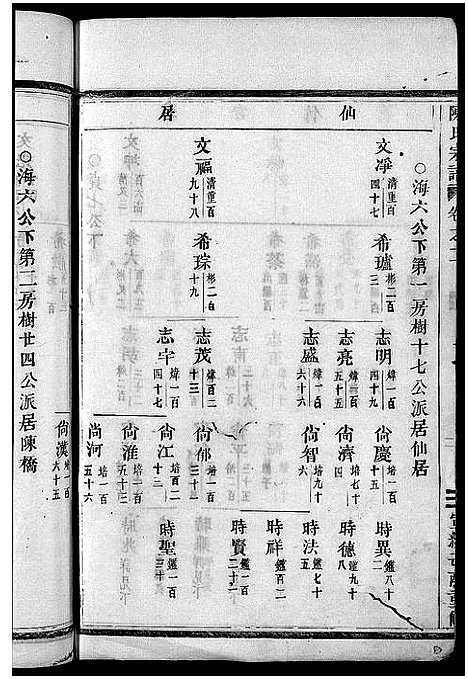 仙居
○海六公下第一房樹十七公派居仙居
文淨 清重百四十七
文福 清重百九十八
希瓐 彬二百三
希琮 彬二百十九
志明 煒一百四十
志亮 煒一百五十五
志盛 煒一百六十六
志茂 煒百二十三
志宇 煒一百四十七
尙慶 培一百五
尙濟 培一百四
尙智 培九十六
尙郁 培百二三十一
尙江 培一百十三
尙淮 培一百五十三
尙河 培一百五十六
尙漢 培一百六十五
時異 鑑八十二
時德 鑑九十八
時法 鑑七十五
時祥 鑑百二
時賢 鑑一百二十二
時聖 鑑一百三十
○海六公下第二房樹廿四公派居陳橋